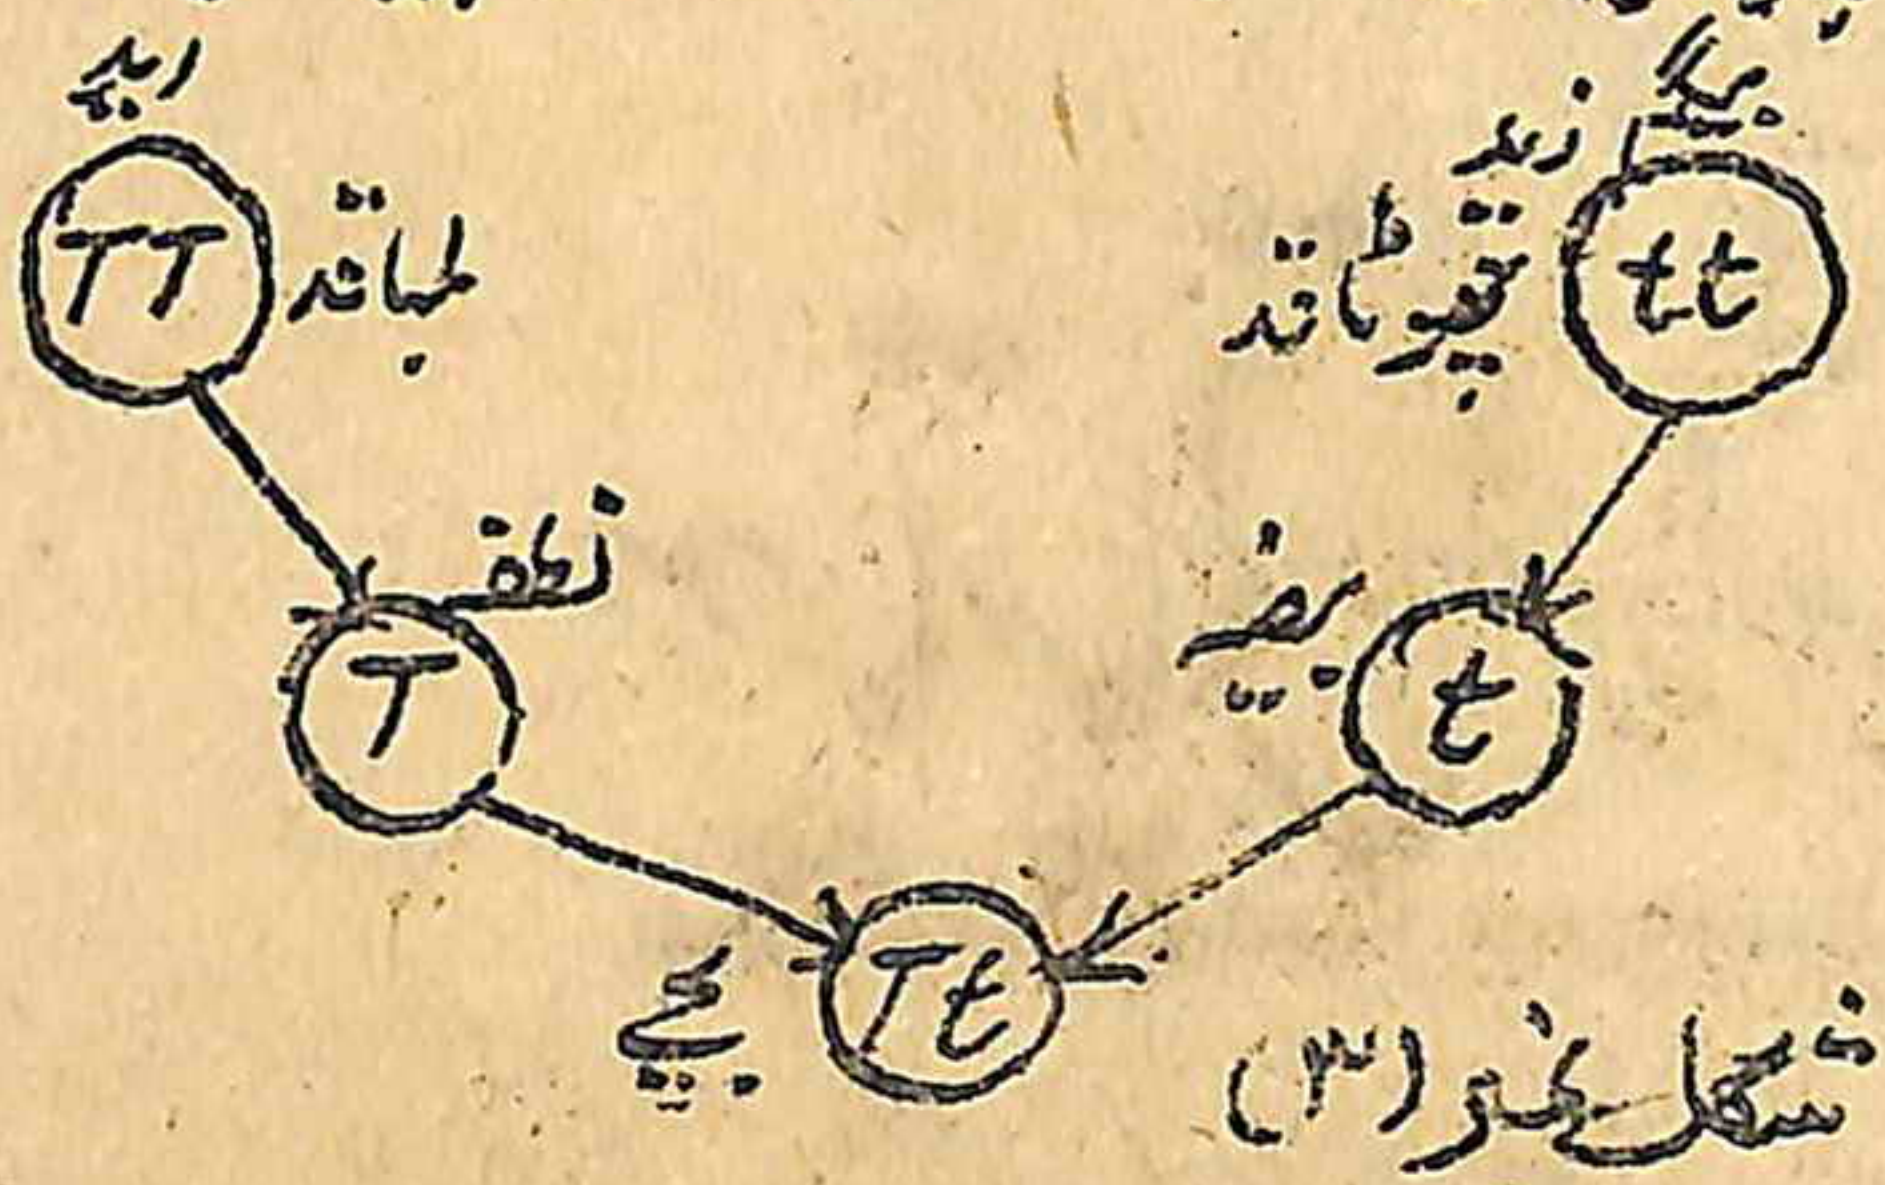 TT
لمبا قد
زید
چھوٹا قد
tt
نطفہ
T
بیضہ
t
بچے
Tt
شکل نمبر (۳)